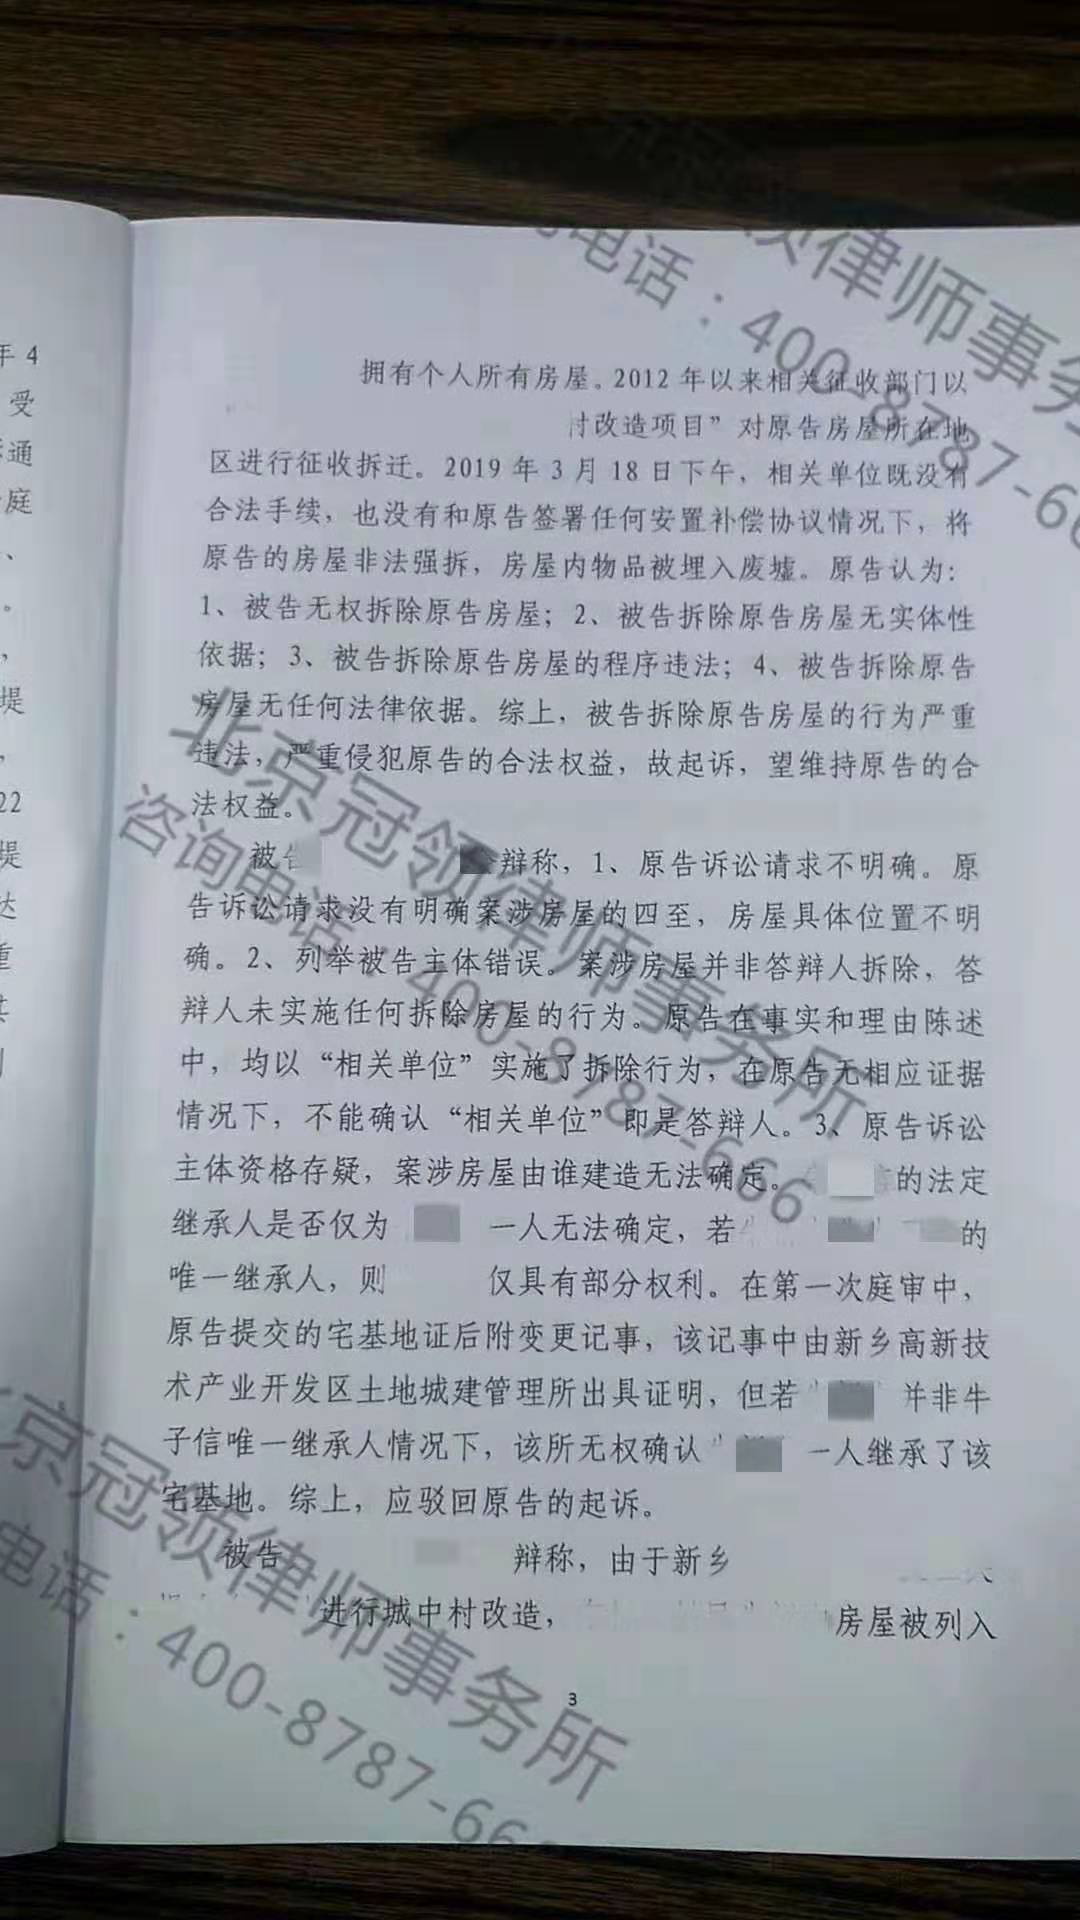 年 4
受
通
庭
、
。
，
堤
，
22
堤
达
重
拥有个人所有房屋。2012 年以来相关征收部门以
村改造项目”对原告房屋所在地
区进行征收拆迁。2019 年 3 月 18 日下午，相关单位既没有
合法手续，也没有和原告签署任何安置补偿协议情况下，将
原告的房屋非法强拆，房屋内物品被埋入废墟。原告认为：
1、被告无权拆除原告房屋；2、被告拆除原告房屋无实体性
依据；3、被告拆除原告房屋的程序违法；4、被告拆除原告
房屋无任何法律依据。综上，被告拆除原告房屋的行为严重
违法，严重侵犯原告的合法权益，故起诉，望维持原告的合
法权益。
被告 辩称，1、原告诉讼请求不明确。原
告诉讼请求没有明确案涉房屋的四至，房屋具体位置不明
确。2、列举被告主体错误。案涉房屋并非答辩人拆除，答
辩人未实施任何拆除房屋的行为。原告在事实和理由陈述
中，均以“相关单位”实施了拆除行为，在原告无相应证据
情况下，不能确认“相关单位”即是答辩人。3、原告诉讼
主体资格存疑，案涉房屋由谁建造无法确定。 的法定
继承人是否仅为 一人无法确定，若 的
唯一继承人，则 仅具有部分权利。在第一次庭审中，
原告提交的宅基地证后附变更记事，该记事中由新乡高新技
术产业开发区土地城建管理所出具证明，但若 并非牛
子信唯一继承人情况下，该所无权确认 一人继承了该
宅基地。综上，应驳回原告的起诉。
被告 辩称，由于新乡
进行城中村改造， 房屋被列入
3
电话：400-8787-66
领律师事务
北京冠领律师事务所
咨询电话：400-8787-666
京冠领律师事务所
电话：400-8787-66